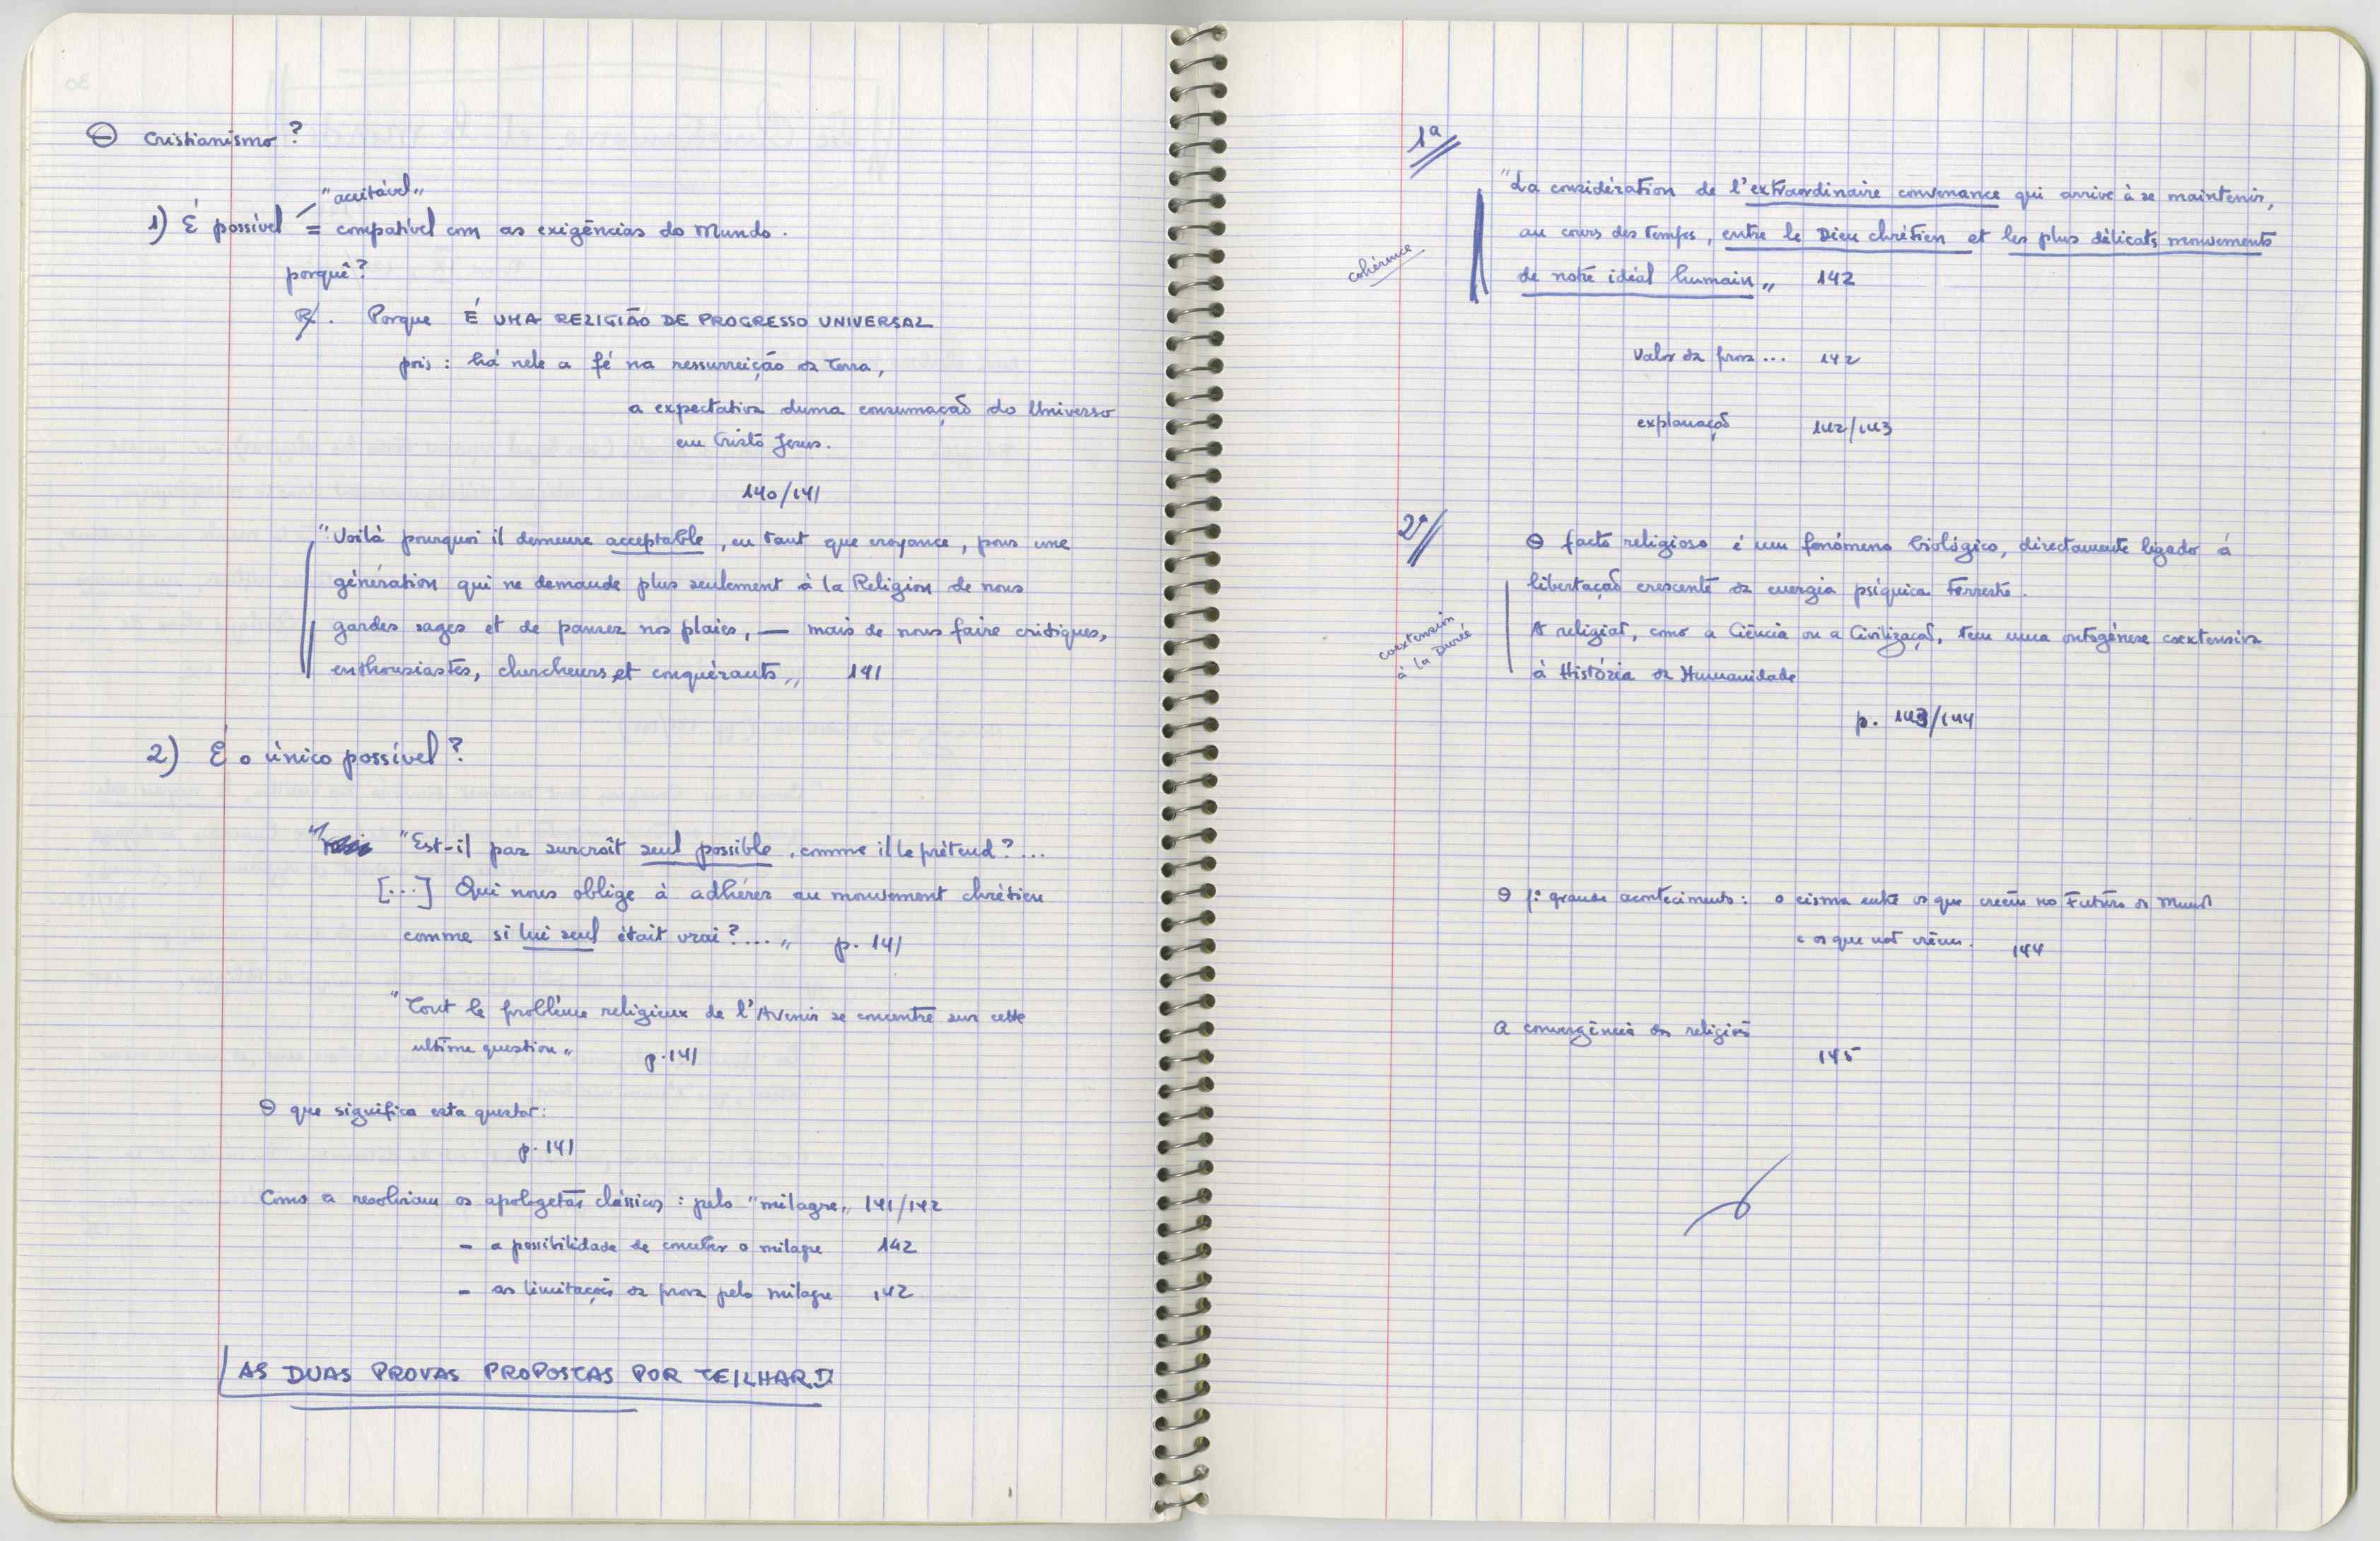 O Cristianismo?
"aceitável"
1) É possível = compatível com as exigências do Mundo.
porquê?
R. Porque É UMA RELIGIÃO DE PROGRESSO UNIVERSAL
pois: há nele a fé na ressurreição da Terra,
a expectativa duma consumação do Universo
em Cristo Jesus.
140/141
"Voilà pourquoi il demeure acceptable, en tant que croyance, pour une
génération qui ne demande plus seulement à la Religion de nous
garder sages et de panser nos plaies, — mais de nous faire critiques,
enthousiastes, chercheurs et conquérants" 141
2) É o único possível?
"Est-il par surcroît seul possible, comme il le prétend?...
[...] Qui nous oblige à adhérer au mouvement chrétien
comme si lui seul était vrai?..." p. 141
"Tout le problème religieux de l'Avenir se concentre sur cette
ultime question" p. 141
O que significa esta questão:
p. 141
Como a resolviam os apologetas clássicos: pelo "milagre" 141/142
- a possibilidade de conceber o milagre 142
- as limitações da prova pelo milagre 142
AS DUAS PROVAS PROPOSTAS POR TEILHARD
1ª
"La considération de l'extraordinaire convenance qui arrive à se maintenir,
au cours des temps, entre le Dieu chrétien et les plus délicats mouvements
de notre idéal humain" 142
cohérence
Valor da prova... 142
explanação 142/143
2ª
O facto religioso é um fenómeno biológico, directamente ligado à
libertação crescente da energia psíquica Terrestre.
A religião, como a Ciência ou a Civilização, tem uma ontogénese coextensiva
à História da Humanidade
coextension
à la Durée
p. 143/144
O 1º grande acontecimento: o cisma entre os que crêem no Futuro do Mundo
e os que não crêem. 144
A convergência das religiões
145